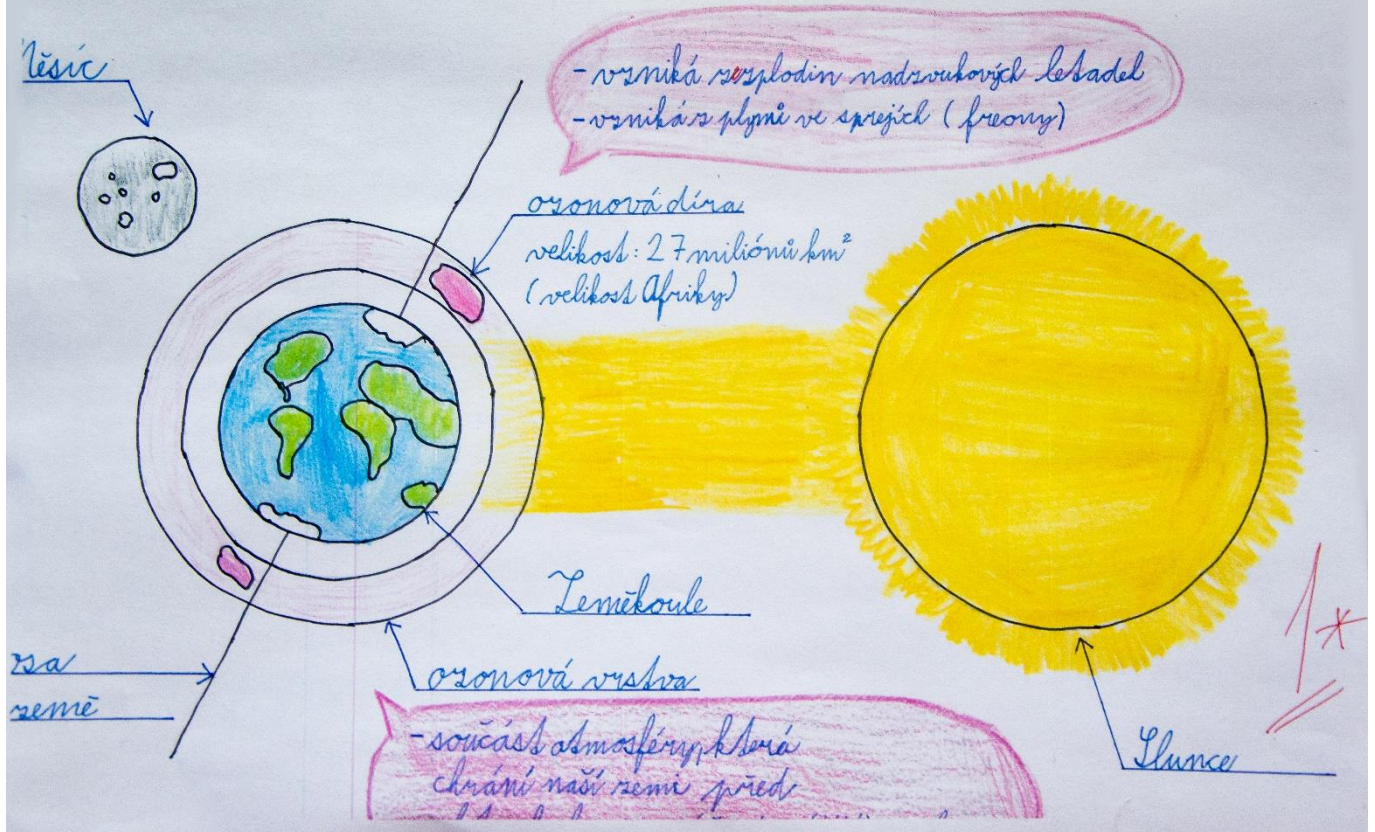 Měsíc
- vzniká ze zplodin nadzvukových letadel
- vzniká z plynů ve sprejích (freony)
ozonová díra
velikost: 27 miliónů km²
(velikost Afriky)
Zeměkoule
osa
země
ozonová vrstva
- součást atmosféry, která
chrání naší zemi před
Slunce
1*